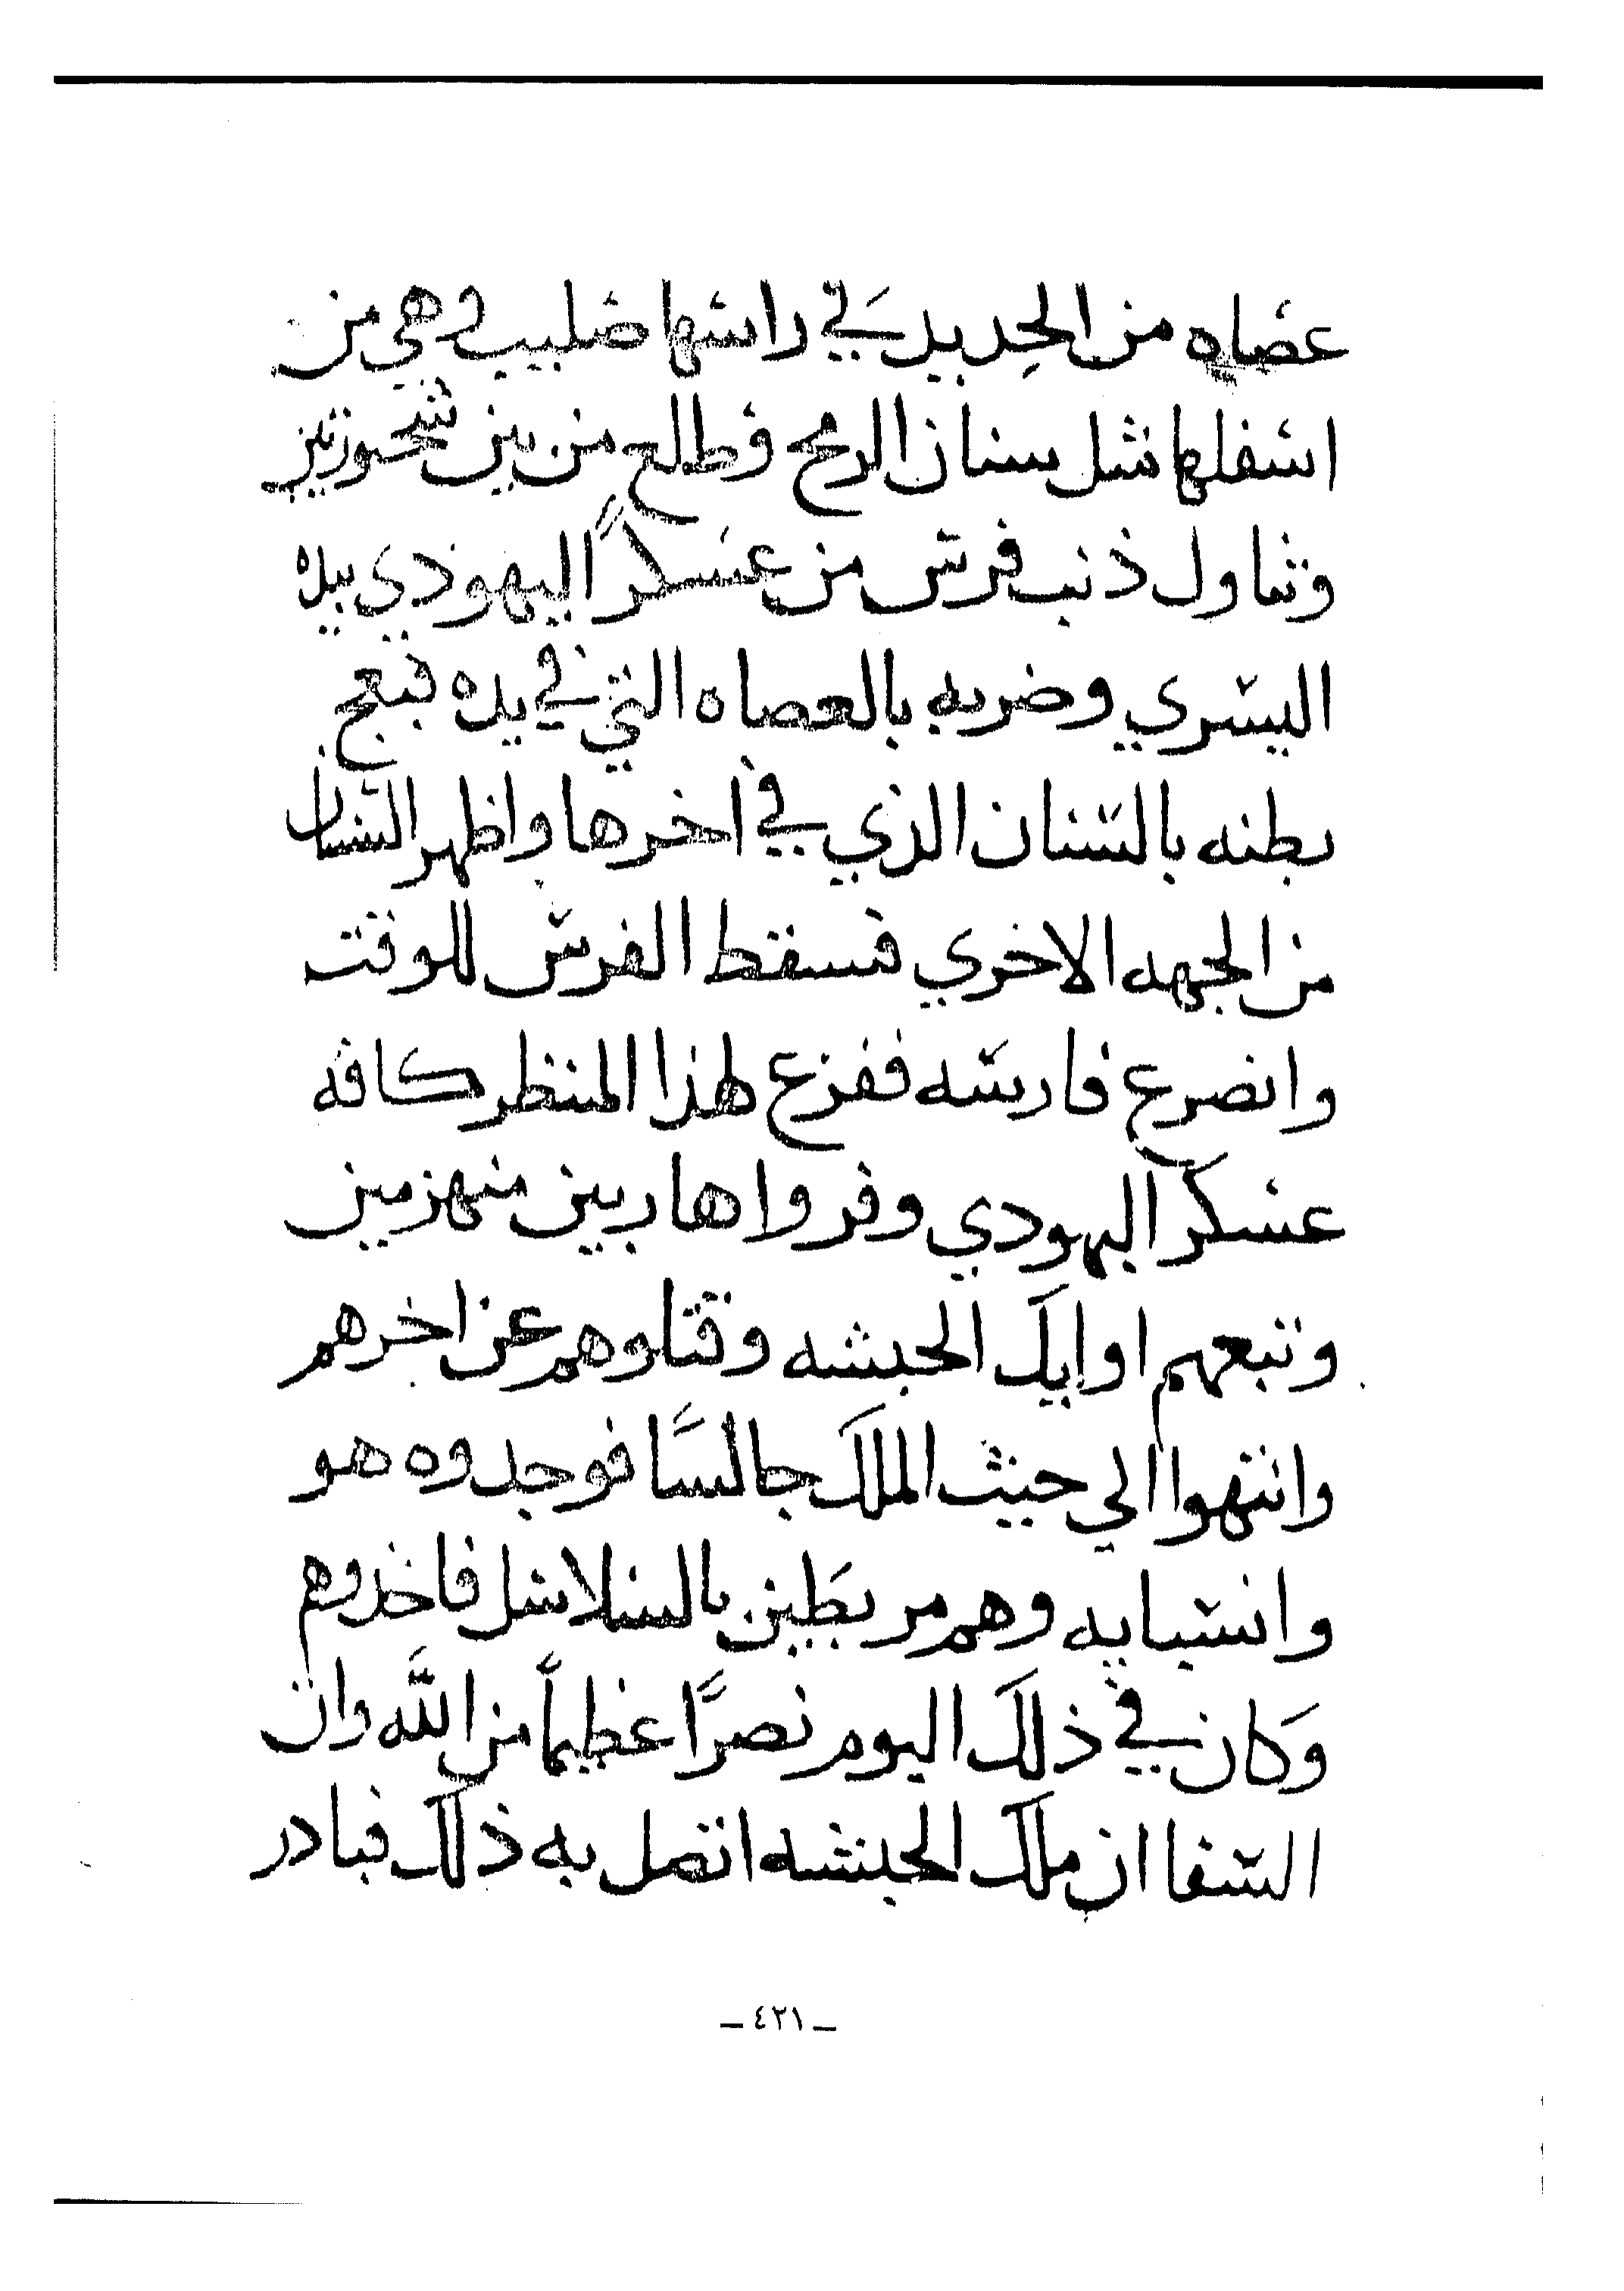 عصاه من الحديد في راسها صليب وهي من
اسفلها مثل سنان الرمح وطلع من بين شجورتين
وتناول ذنب فرس من عسكر اليهودي بيده
اليسري وضربه بالعصاه التي في يده فبعج
بطنه بالسنان الذي في اخرها واظهر السنان
من الجهه الاخري فسقط الفرس للوقت
وانصرع فارسه ففزع لهذا المنظر كافه
عسكر اليهودي وفروا هاربين منهزمين
وتبعهم اوليك الحبشه وقتلوهم عن اخرهم
وانتهوا الي حيث الملك جالسًا فوجدوه هو
وانسبايه وهم مربطين بالسلاسل فاخذوهم
وَكان في ذلك اليوم نصرًا عظيماً من اللَّه وان
السفا ان ملك الحبشه اتصل به ذلك فبادر
ـ ٤٢١ ـ